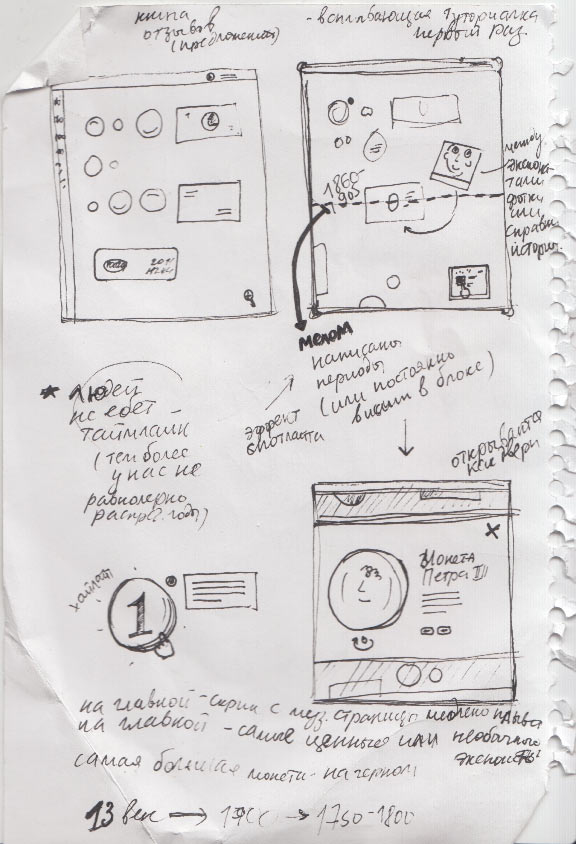 книга
отзывов
(предложений)
- всплывающая туториалка
первый раз.
1860-
905
между
экспона-
тами
фотки
или
справки
истории.
мелом
написаны
периоды
(или постоянно
висит в блоке)
эффект
* людей
не ебёт
таймлайн
(тем более
у нас не
равномерно
распред. годы)
открывается
как двери
X
Монета
Петра III
хайлайт
1
на главной - скрин с
страница медленно
на главной - самые ценные или необычные
экспонаты
самая большая монета - на черном
13 век → → 1750-1800